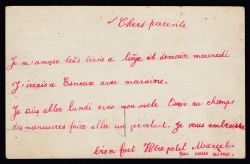 Chers parents
Je m'amuse très bien a Liège et demain mercredi
J'irais a Esneux avec maraine.
Je suis aller lundi avec mon oncle Omer au champs
des maneuvres faire aller un cervolant. Je vous embrasse
bien fort Votre petit Marcel
qui vous aime.